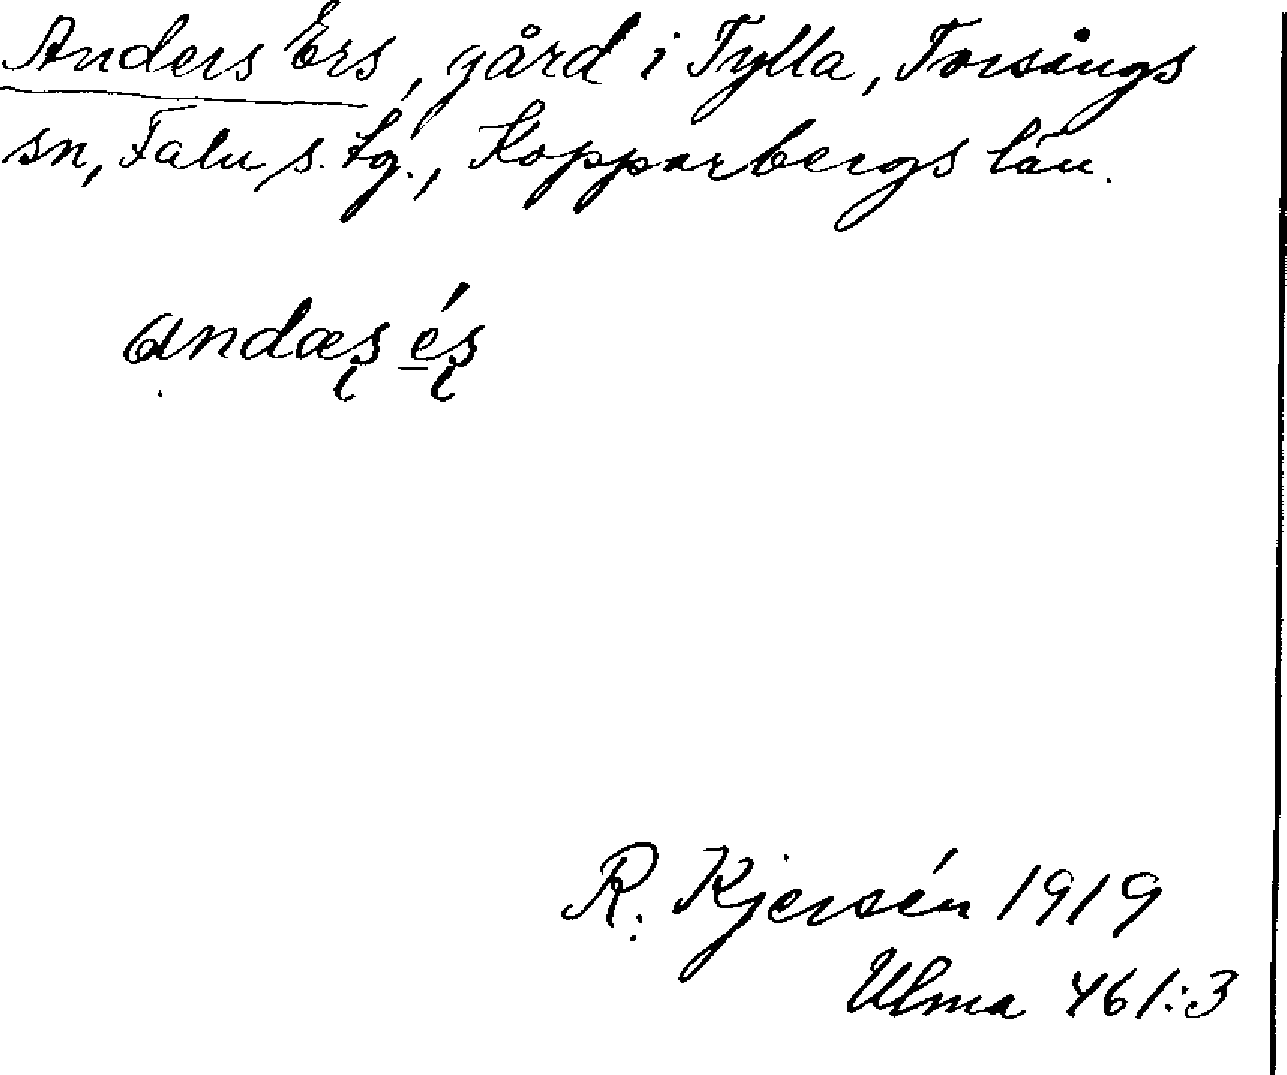 Anders Ers, gård i Tylla, Torsångs
sn, Falu s. tg., Kopparbergs län.
andæs és
R. Kjersén 1919
Ulma 461:3